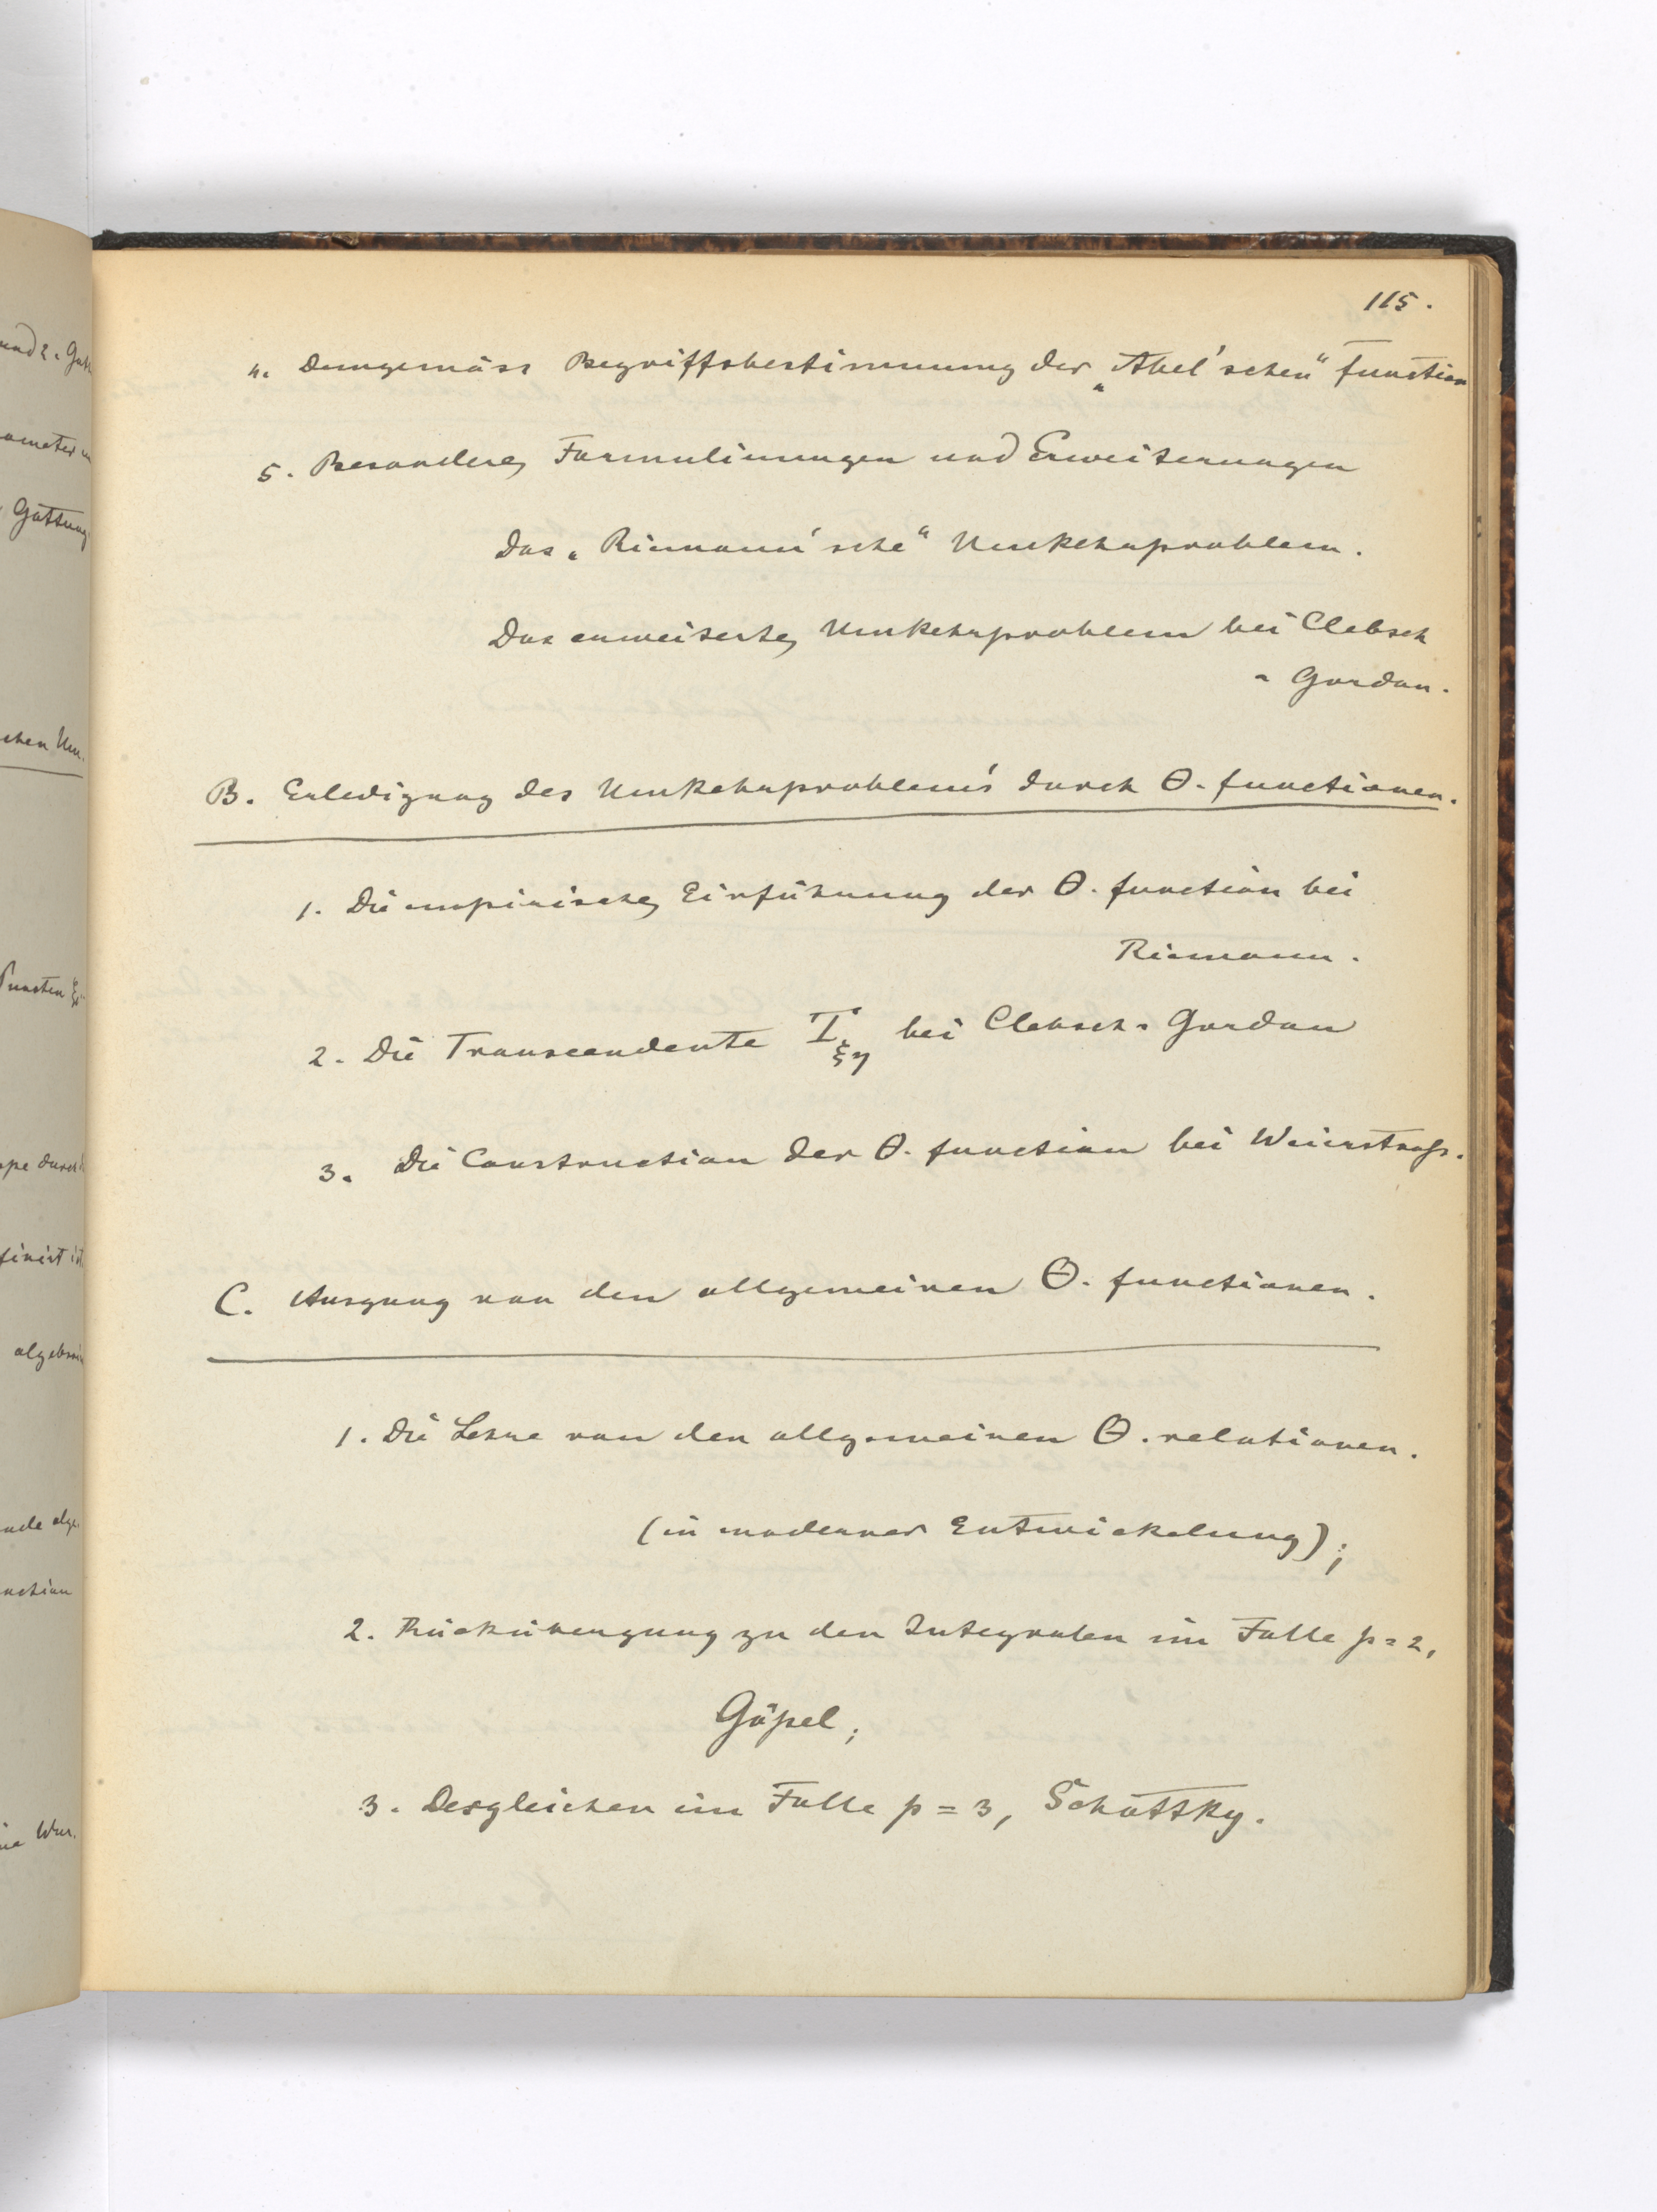 115.
4. Demgemäss Begriffsbestimmung der „Abel'schen“ function
5. Besondere Formulirungen und Erweiterungen
Das „Riemann'sche“ Umkehrproblem.
Das erweiterte Umkehrproblem bei Clebsch
- Gordan.
B. Erledigung des Umkehrproblem's durch Θ-functionen.
1. Die empirische Einführung der Θ-function bei
Riemann.
2. Die Transcendente T_{ξη} bei Clebsch-Gordan
3. Die Construction der Θ-function bei Weierstraß.
C. Ausgang von den allgemeinen Θ-functionen.
1. Die Lehre von den allgemeinen Θ-relationen.
(in moderner Entwickelung);
2. Rückübergang zu den Integralen im Falle p = 2,
Göpel;
3. Desgleichen im Falle p = 3, Schottky.
und 2. Gatt
Gattung
chen Um.
Puncten ξ
finirt ist
algebrai